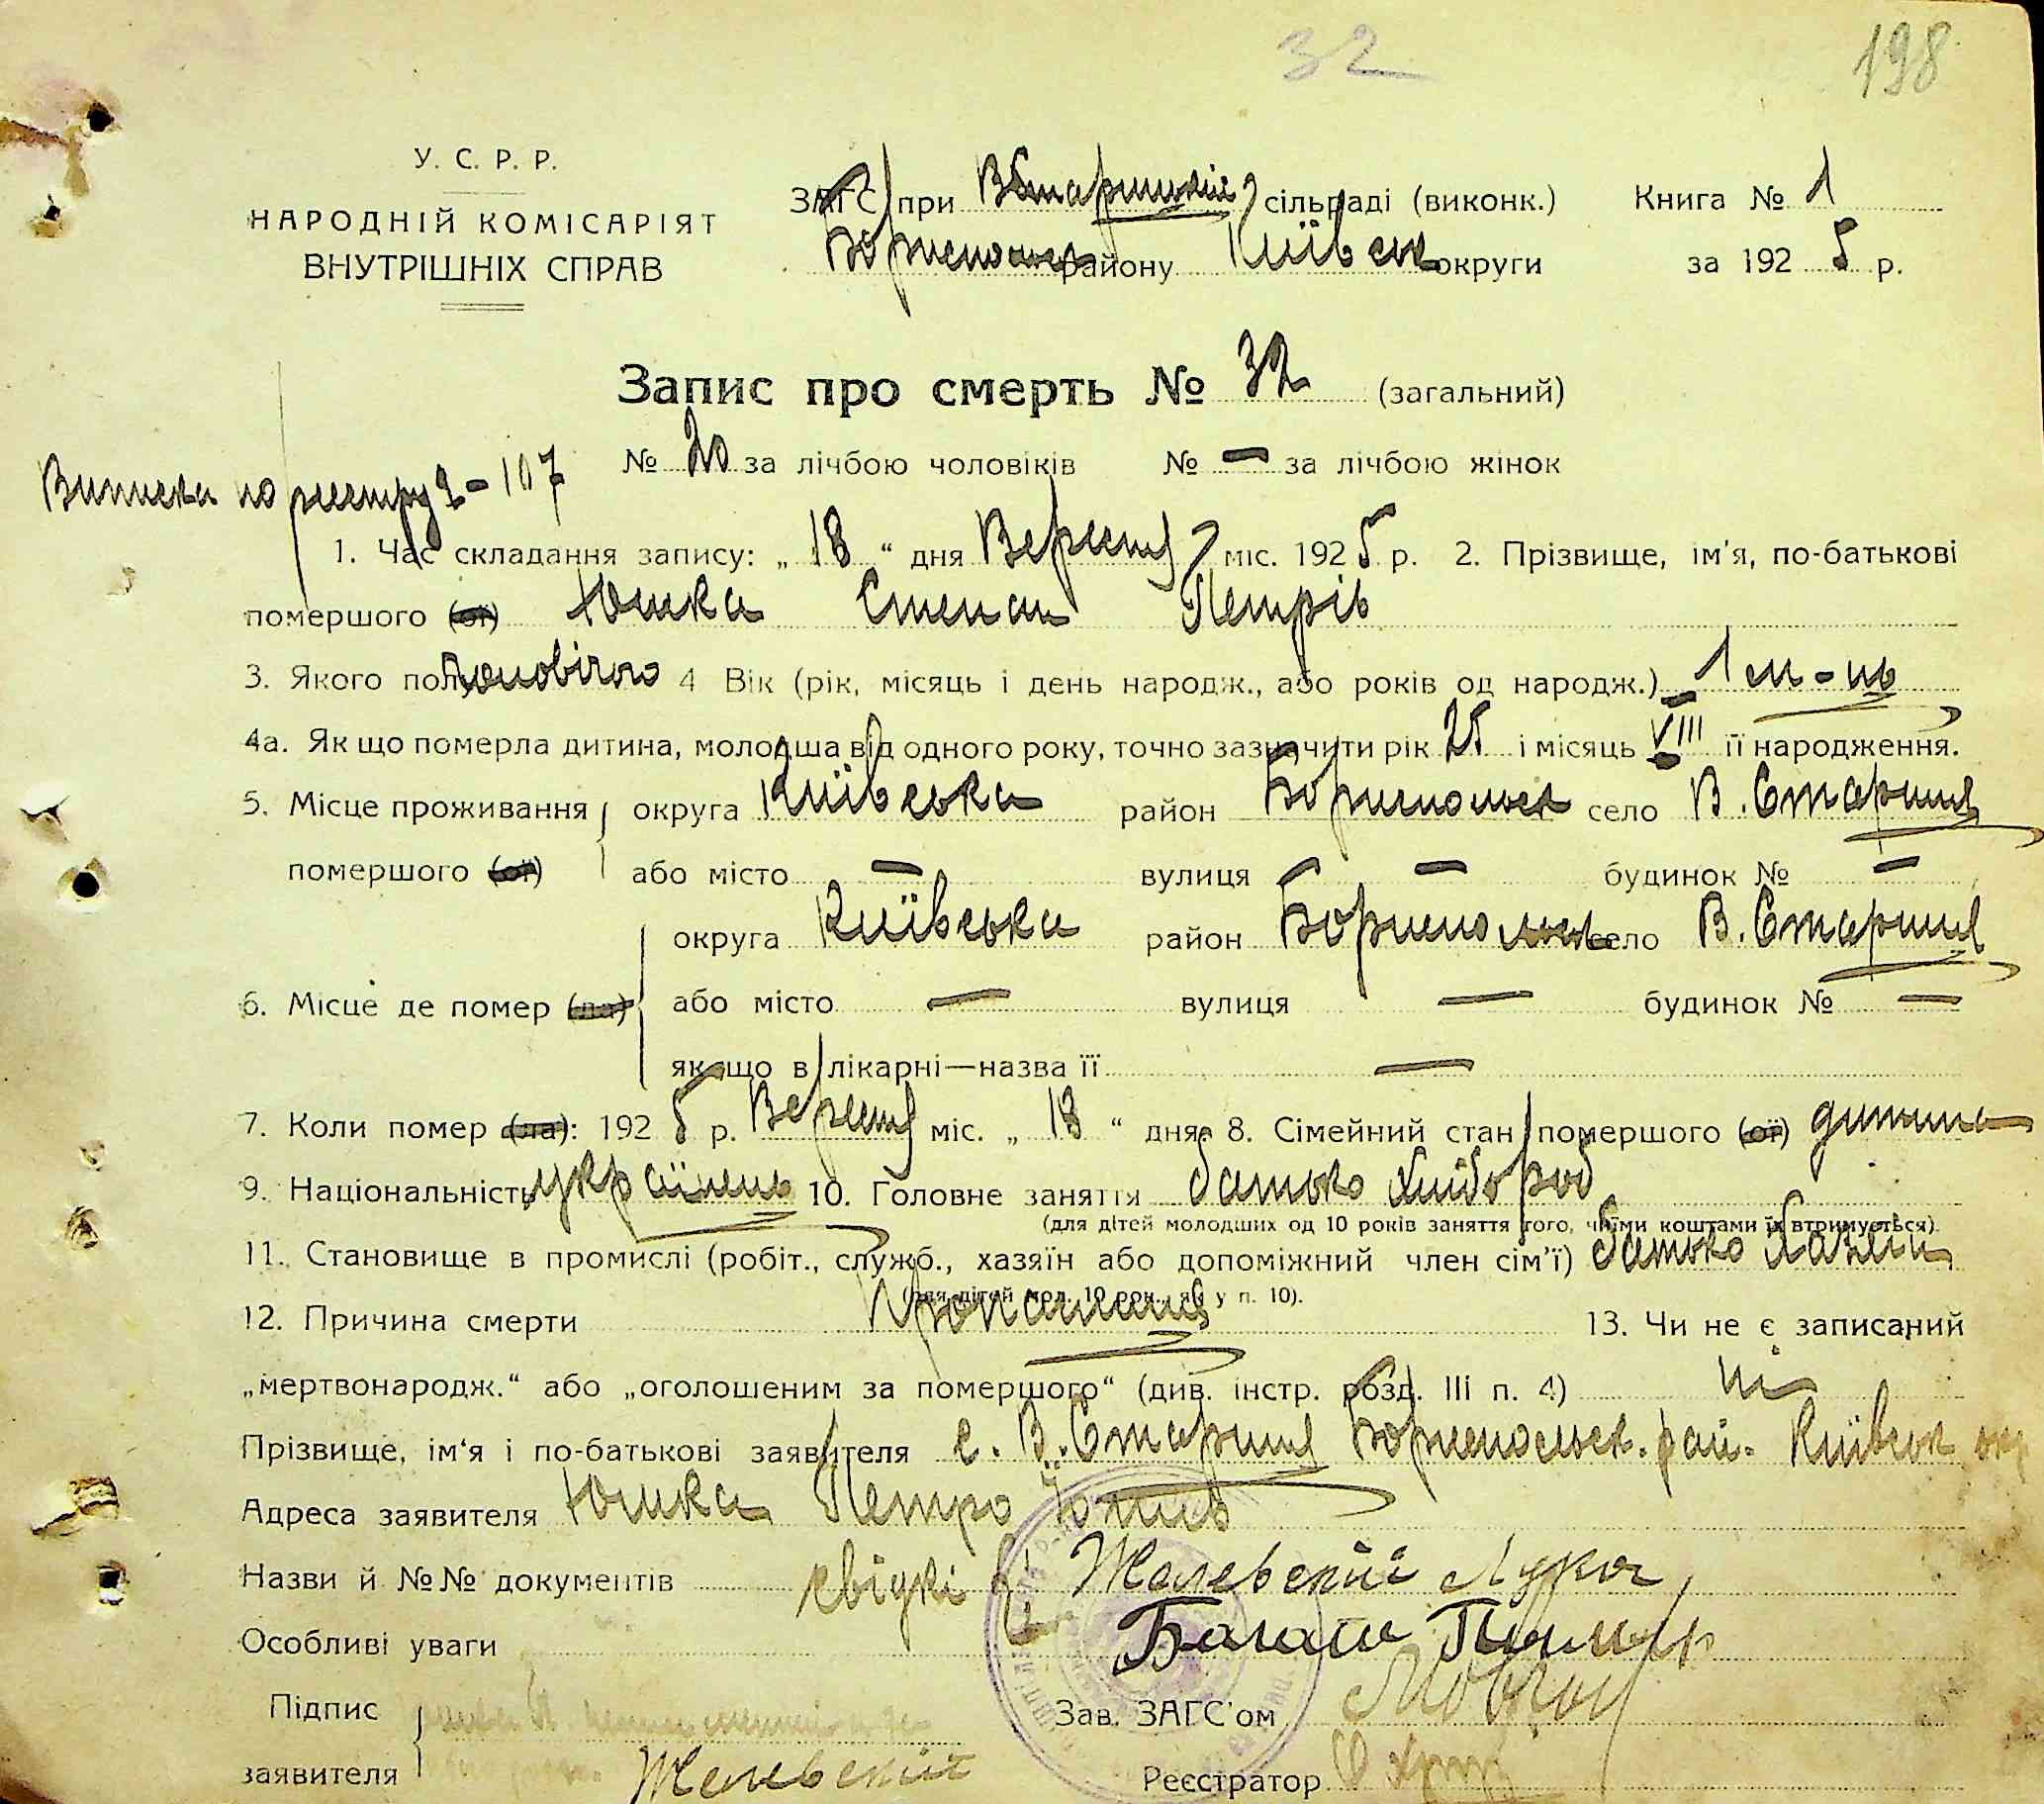 32 198
У. С. Р. Р.
НАРОДНІЙ КОМІСАРІЯТ
ВНУТРІШНІХ СПРАВ
ЗАГС при В Старицькій сільраді (виконк.) Книга № 1
Бориспольск району Київськ округи за 1925 р.
Запис про смерть № 32 (загальний)
№ 20 за лічбою чоловіків № — за лічбою жінок
Виписка по реєстру 2-107
1. Час складання запису: „ 18 “ дня Вересня міс. 1925 р. 2. Прізвище, ім'я, по-батькові
помершого (ої) Юшка Степан Петрів
3. Якого полу чоловічого 4 Вік (рік, місяць і день народж., або років од народж.) 1 м-ць
4а. Як що померла дитина, молодша від одного року, точно зазначити рік 25 і місяць VIII її народження.
5. Місце проживання округа Київська район Бориспольск село В. Стариця
помершого (ої) або місто — вулиця — будинок № —
округа Київська район Бориспольск село В. Стариця
6. Місце де помер (ла) або місто — вулиця — будинок № —
як що в лікарні—назва її —
7. Коли помер (ла): 1925 р. Вересня міс. „ 18 “ дня 8. Сімейний стан помершого (ої) дитина
9. Національність українець 10. Головне заняття батько хлібороб
(для дітей молодших од 10 років заняття того, чиїми коштами їх втримується).
11. Становище в промислі (робіт., служб., хазяїн або допоміжний член сім'ї) батько Хазяїн
(для дітей мол. 10 рок., як у п. 10).
12. Причина смерти 13. Чи не є записаний
„мертвонародж.“ або „оголошеним за помершого“ (див. інстр. розд. III п. 4) ні
Прізвище, ім'я і по-батькові заявителя с. В. Стариця Бориспольск. рай. Київськ окр
Адреса заявителя Юшка Петро
Назви й №№ документів свідкі Желевский Лука
Особливі уваги
Підпис Зав. ЗАГС'ом
заявителя Желевский Реєстратор